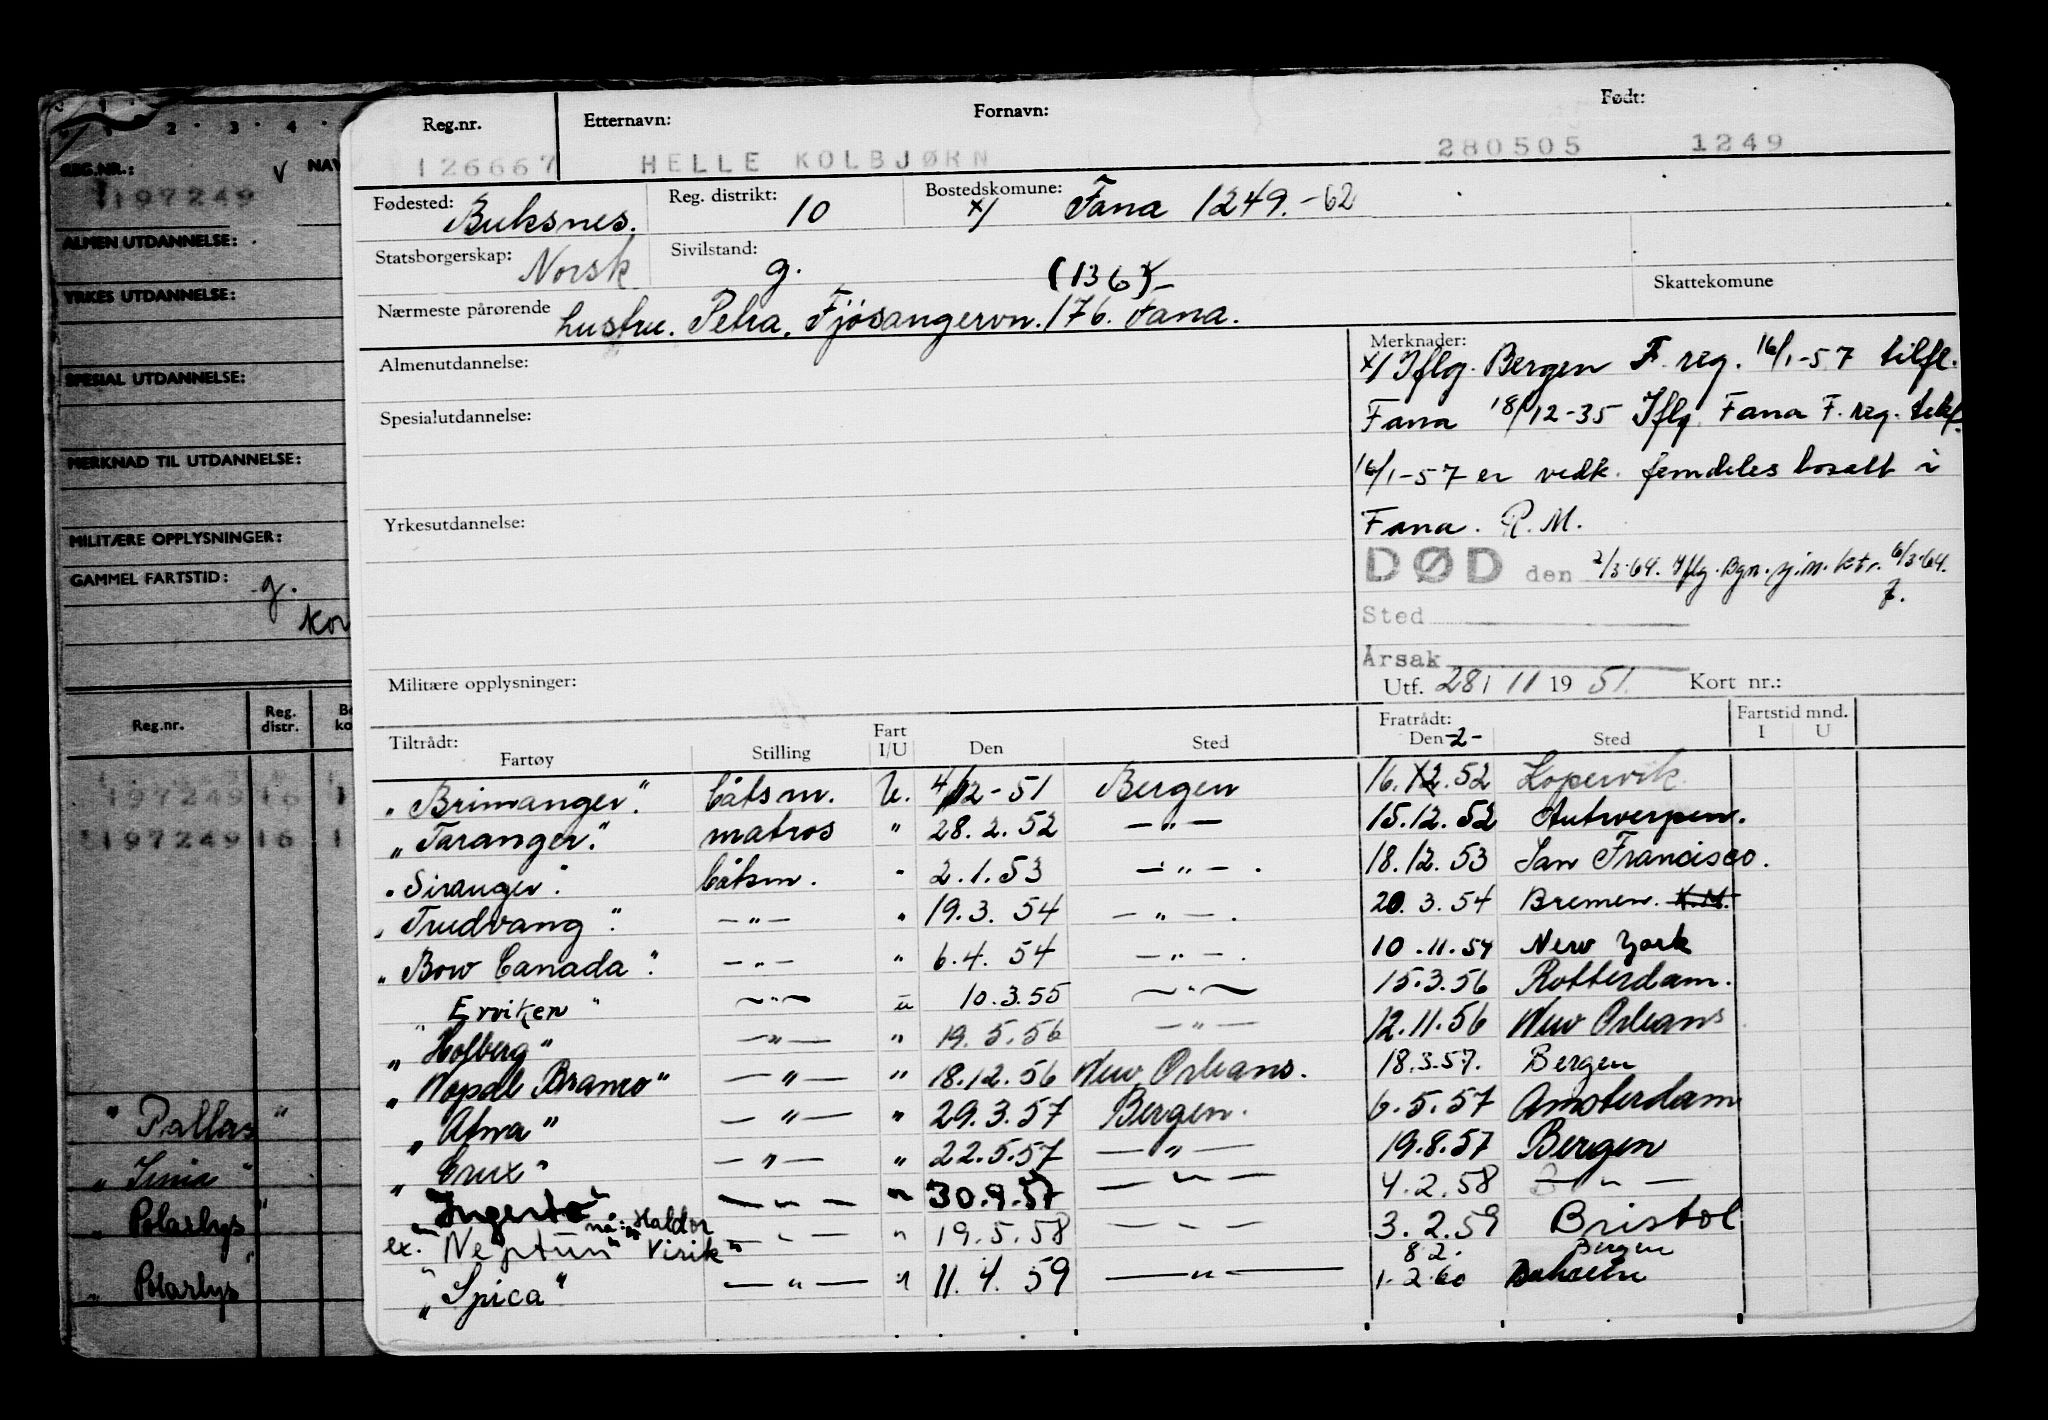 Reg.nr. Etternavn: Fornavn: Født:
126667 HELLE KOLBJØRN 280505 1249
Fødested: Buksnes. Reg. distrikt: 10 Bostedskomune: x/ Fana 1249.-62
Statsborgerskap: Norsk Sivilstand: g. (136) Skattekomune
Nærmeste pårørende hustru. Petra, Fjøsangervn. 176. Fana.
Almenutdannelse:
Spesialutdannelse:
Yrkesutdannelse:
Militære opplysninger:
Merknader:
x/ Iflg. Bergen F. reg. 16/1-57 tilfl.
Fana 18/12-35 Iflg. Fana F. reg. telf.
16/1-57 er vedk. fremdeles bosatt i
Fana. R.M.
DØD den 2/3-64. Iflg. Bgn. 6/3-64.
Sted
Årsak
Utf. 28/11 1951. Kort nr.:
Tiltrådt: Fratrådt: Fartstid mnd.
Fartøy Stilling Fart I/U Den Sted Den -2- Sted I U
"Brimanger". båtsm. U. 4/12-51 Bergen 16.12.52 Kopervik
"Taranger". matros " 28.2.52 —"— 15.12.52 Antwerpen.
"Siranger". båtsm. " 2.1.53 —"—. 18.12.53 San Francisco.
"Trudvang". —"— " 19.3.54 —"—. 20.3.54 Bremen. K.M.
"Bow Canada". —"— " 6.4.54 —"—. 10.11.54 New York
"Erviken" —"— u 10.3.55 —"— 15.3.56 Rotterdam.
"Holberg" —"— " 19.5.56 —"— 12.11.56 New Orleans
"Nopal Branco" —"— " 18.12.56 New Orleans. 18.3.57. Bergen
"Afna" —"— " 29.3.57 Bergen. 6.5.57 Amsterdam
"Crux" —"— " 22.5.57 —"— 19.8.57 Bergen
"Ingerto" —"— " 30.9.57 —"— 4.2.58 —"—
ex. "Neptun" nå: "Haldor Virik" —"— " 19.5.58 —"— 3.2.59 Bristol
"Spica" —"— " 11.4.59 —"— 8 2. Bergen
1.2.60
REG.NR.: V NAV
197249
ALMEN UTDANNELSE:
YRKES UTDANNELSE:
SPESIAL UTDANNELSE:
MERKNAD TIL UTDANNELSE:
MILITÆRE OPPLYSNINGER:
GAMMEL FARTSTID: g.
Kor
Reg.nr. Reg. distr. Bo ko
197249 16 1
197249 16 1
"Pallas"
"Polarlys"
"Polarlys"